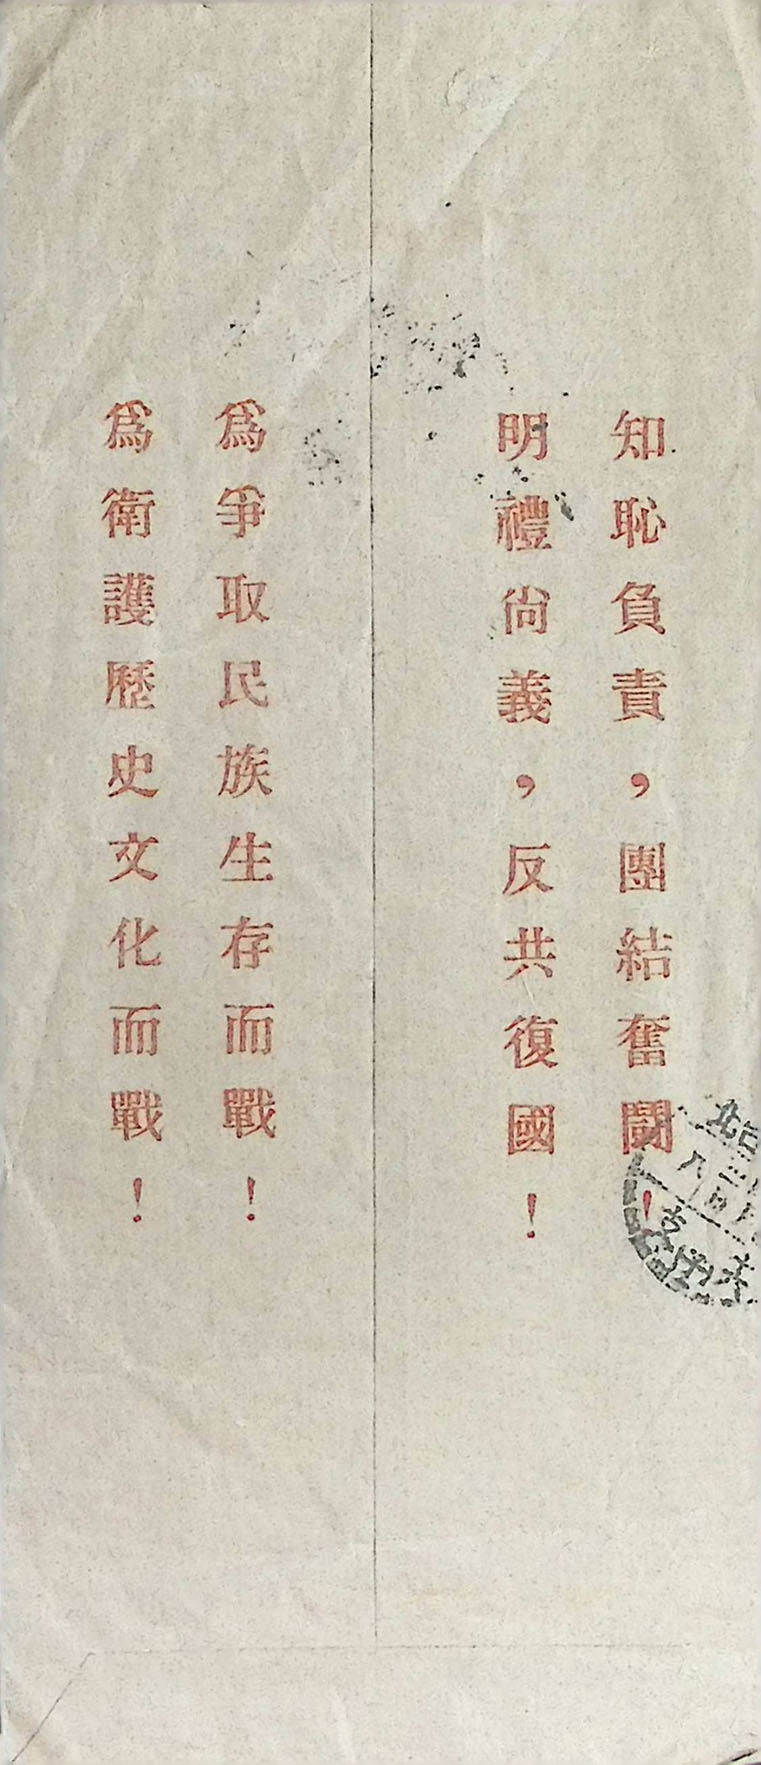 知恥負責，團結奮鬪！
明禮尚義，反共復國！
爲爭取民族生存而戰！
爲衛護歷史文化而戰！